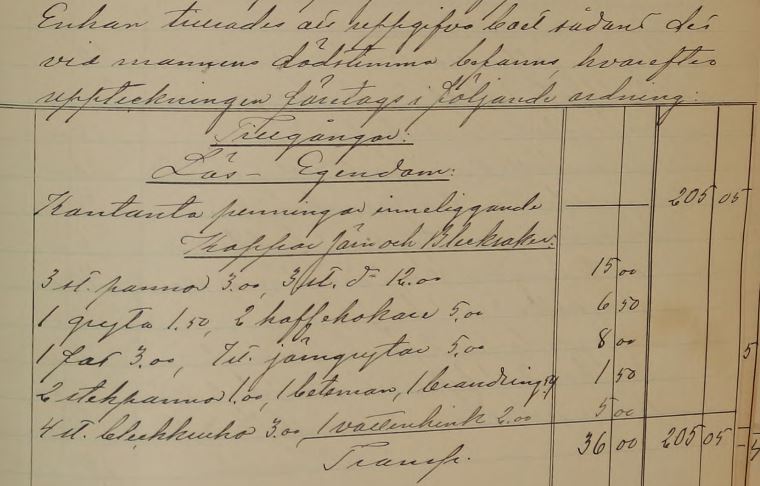 Enkan tillades att uppgifva boet sådant det
vid mannens dödstimma befanns, hvarefter
uppteckningen företogs i följande ordning:
Tillgångar:
Lös- Egendom:
Kontanta penningar inneliggande 205 05
Koppar Järn och Blecksaker:
3 st. pannor 3.00, 3 st. d- 12.00 15 00
1 gryta 1.50, 2 kaffekokare 5.00 6 50
1 fat 3.00, 7 st. järngrytor 5.00 8 00
2 stekpannor 1.00, 1 betsman, 1 brandring 1 50
4 st. bleckkrukor 3.00, 1 vattenhink 2.00 5 00
Transp. 36 00 205 05